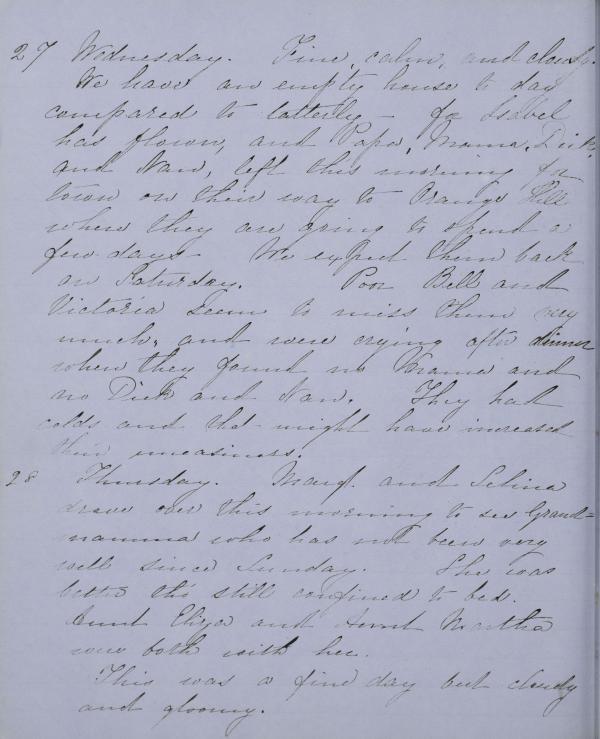 27 Wednesday. Fine, calm, and cloudy.
We have an empty house to day
compared to latterly - for Isabel
has flown, and Papa, Mama, Dick,
and Nan, left this morning for
town on their way to Orange Hill
where they are going to spend a
few days - We expect them back
on Saturday. Poor Bell and
Victoria seem to miss them very
much, and were crying after dinner
when they found no Mama and
no Dick and Nan. They had
colds and that might have increased
their uneasiness.
28 Thursday. Marg. and Selina
drove over this morning to see Grand=
mamma who has not been very
well since Sunday. She was
better tho' still confined to bed.
Aunt Eliza and Aunt Martha
were both with her.
This was a fine day but cloudy
and gloomy.